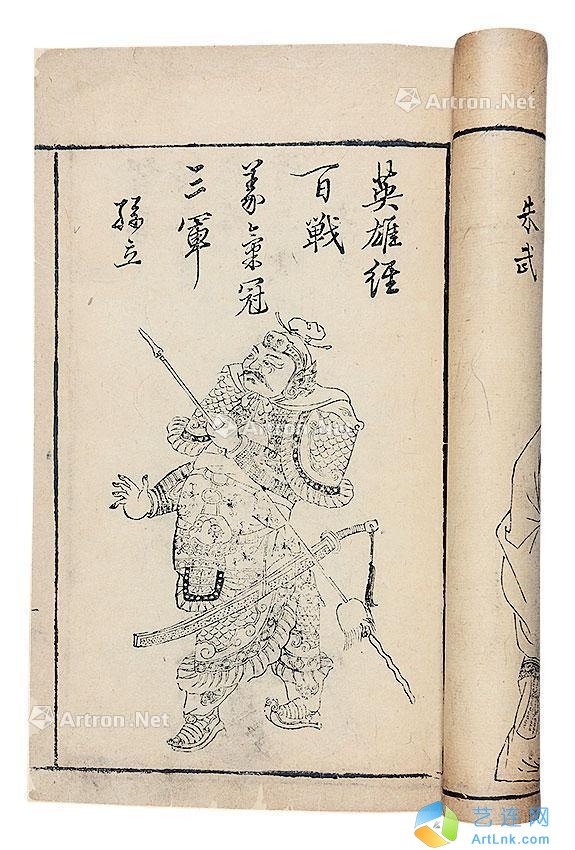 英雄經
百戰
義氣冠
三軍
孫立
朱武
Artron.Net
Artron.Net
Artron.Net
Artron.Net
艺连网
ArtLnk.com